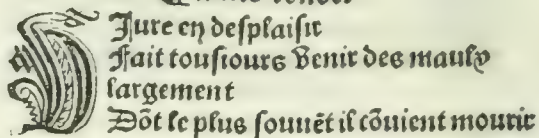 VIure en desplaisir
Fait tousiours Venir des maulx
largement
Dōt le plus souuēt il cōuient mourir